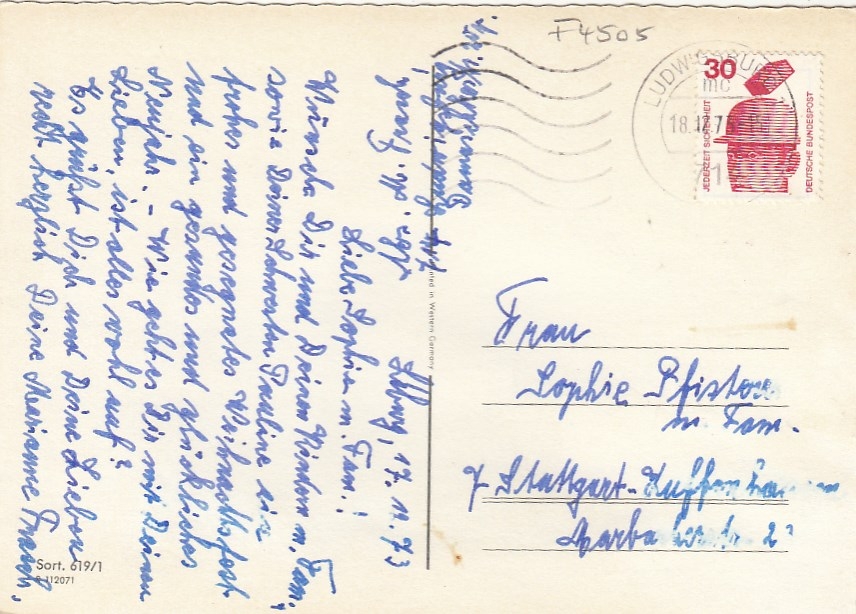 Lbwg, 17. 12. 73
Liebe Sophie m. Fam.!
Wünsche Dir und Deinen Kindern m. Fam.,
sowie Deiner Schwester Pauline ein
frohes und gesegnetes Weihnachtsfest
und ein gesundes und glückliches
Neujahr. – Wie geht es Dir mit Deinen
Lieben, ist alles wohl auf?
Es grüßt Dich und Deine Lieben
recht herzlich Deine Marianne
F4505
LUDWIGSBURG
18.12.73
71
30
JEDERZEIT SICHERHEIT
DEUTSCHE BUNDESPOST
Frau
Sophie Pfister
m. Fam.
7 Stuttgart-Zuffenhausen
Printed in Western Germany
Sort. 619/1
112071